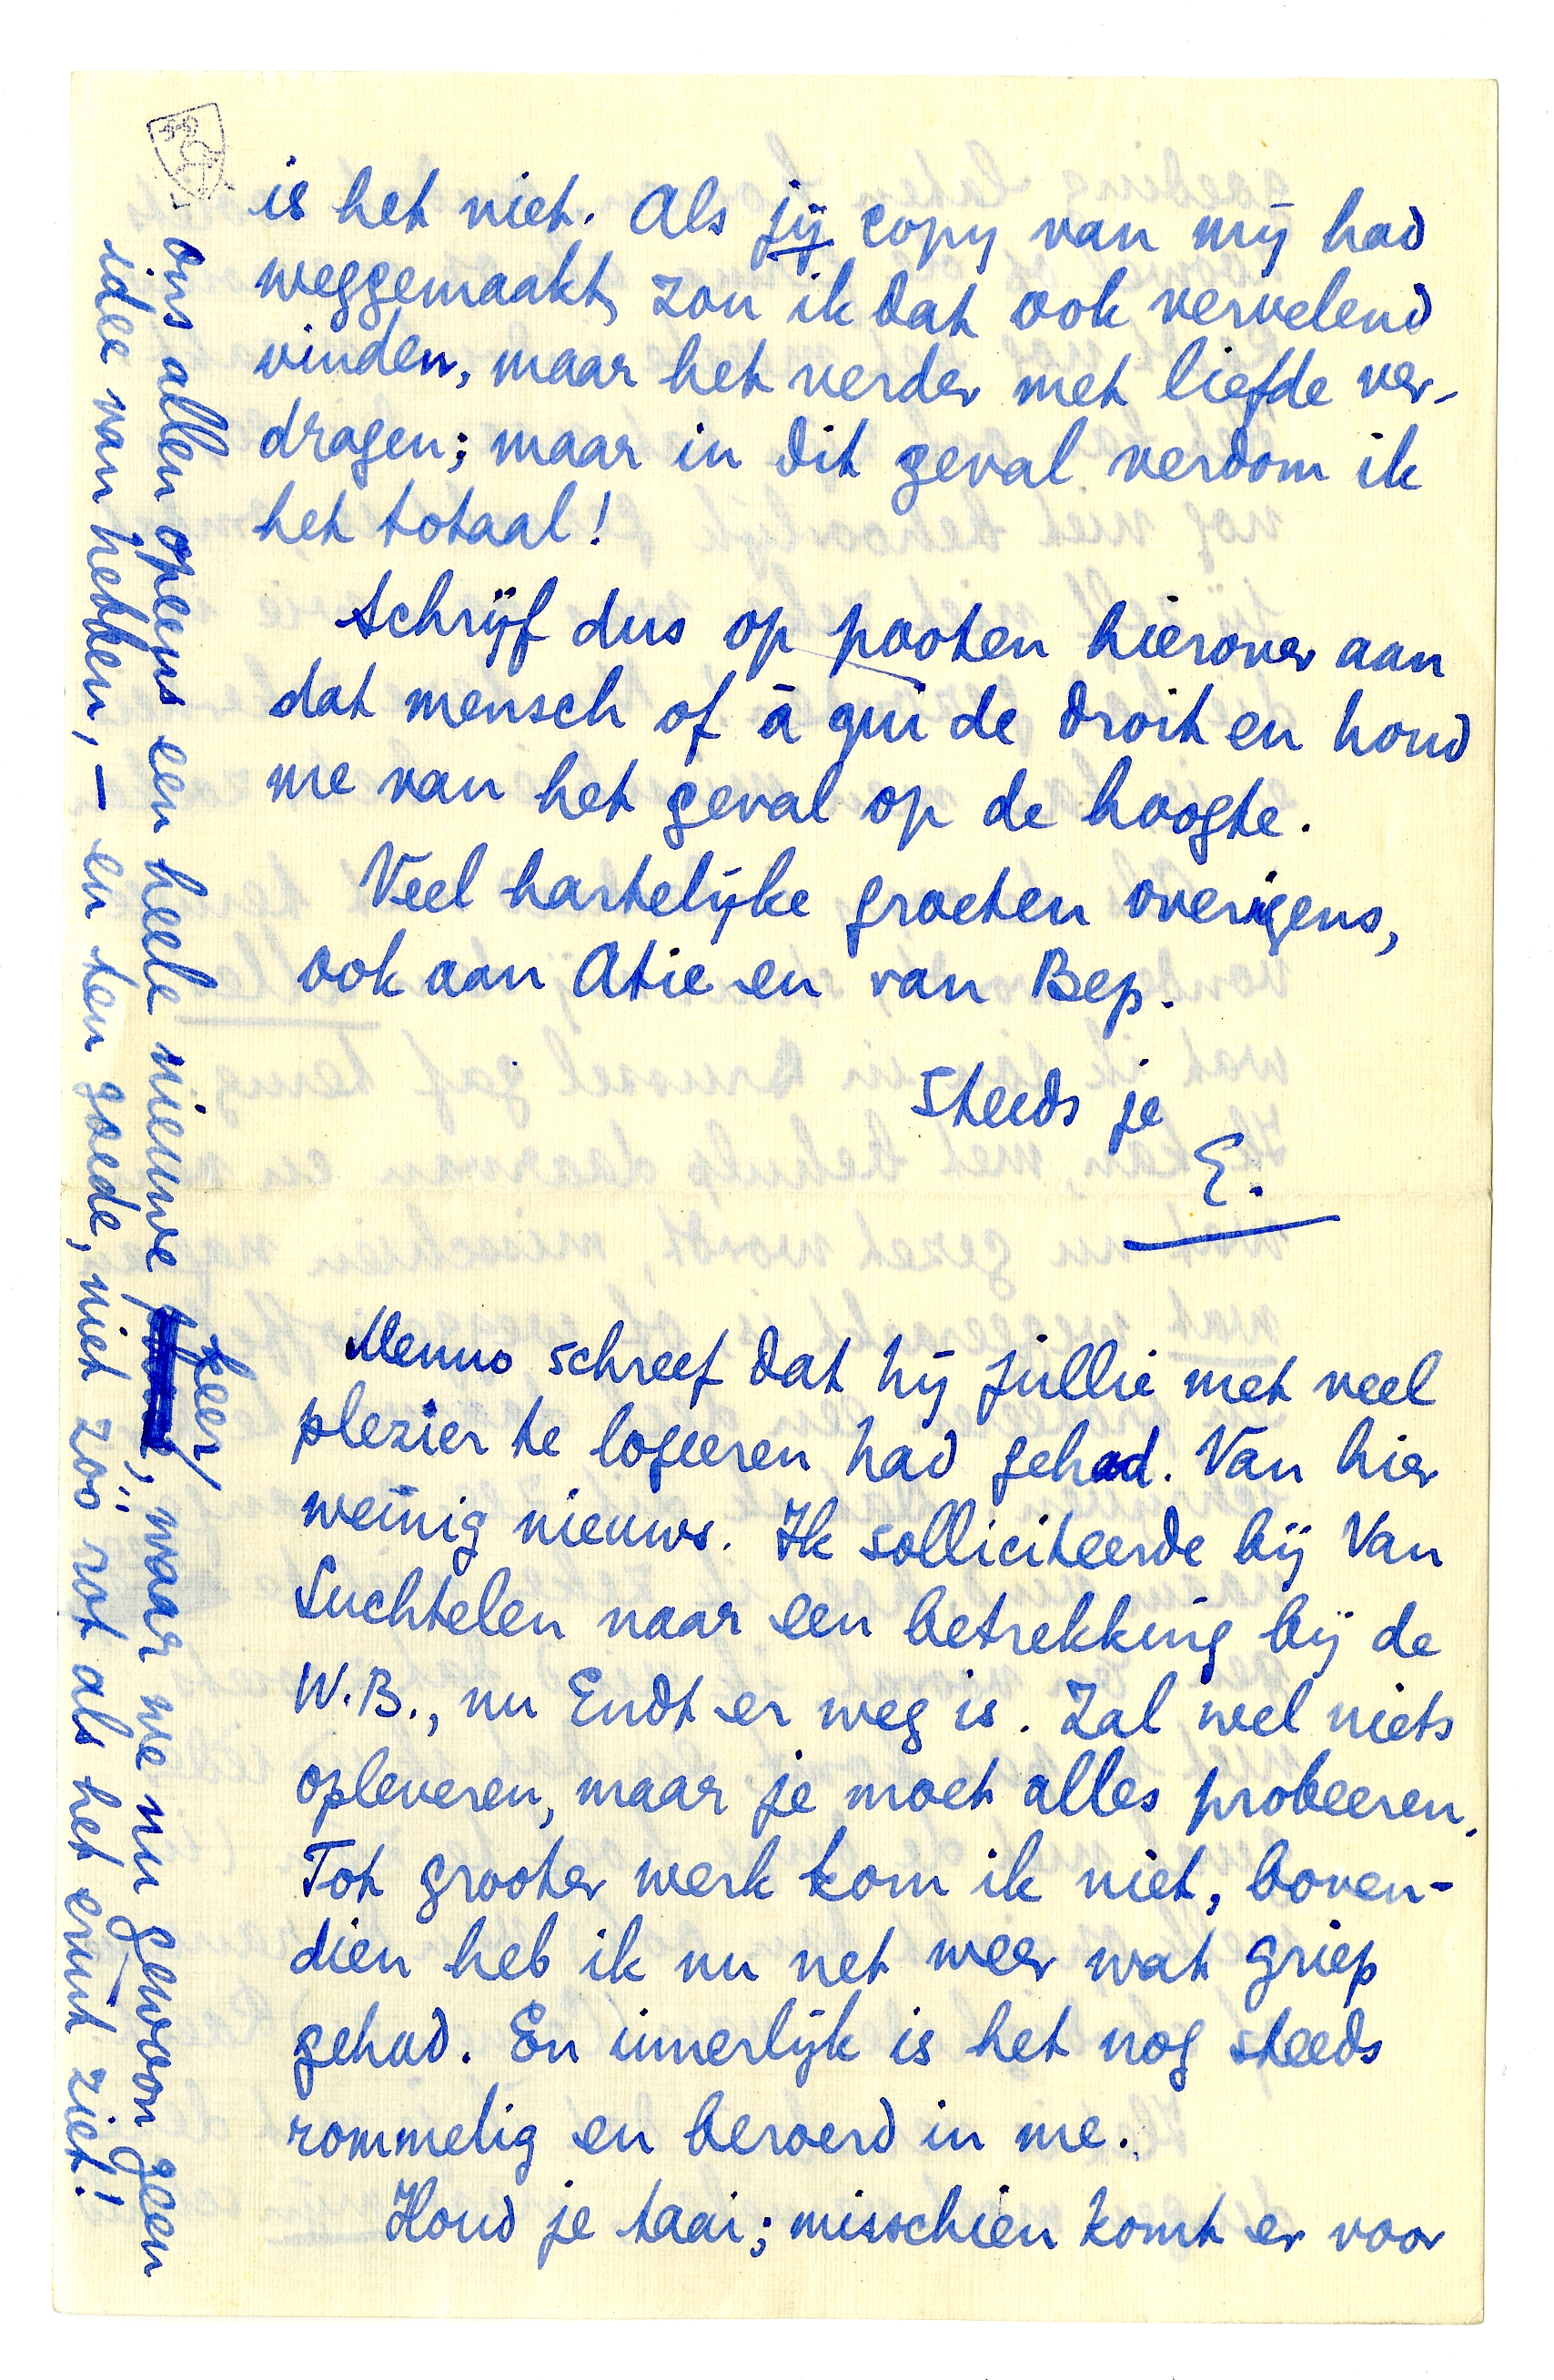 is het niet. Als jij copy van mij had
weggemaakt, zou ik dat ook vervelend
vinden, maar het verder met liefde ver-
dragen; maar in dit geval verdom ik
het totaal!
Schrijf dus op pooten hierover aan
dat mensch of à qui de droit en houd
me van het geval op de hoogte.
Veel hartelijke groeten overigens,
ook aan Atie en van Bep.
Steeds je
E.
Menno schreef dat hij jullie met veel
plezier te logeeren had gehad. Van hier
weinig nieuws. Ik solliciteerde bij Van
Suchtelen naar een betrekking bij de
W.B., nu Endt er weg is. Zal wel niets
opleveren, maar je moet alles probeeren.
Tot grooter werk kom ik niet, boven-
dien heb ik nu net weer wat griep
gehad. En innerlijk is het nog steeds
rommelig en beroerd in me.
Houd je taai; misschien komt er voor
ons allen opeens een heele nieuwe sfeer, waar we nu gewoon geen
idee van hebben, – en ten goede, niet zóó rot als het eruit ziet!